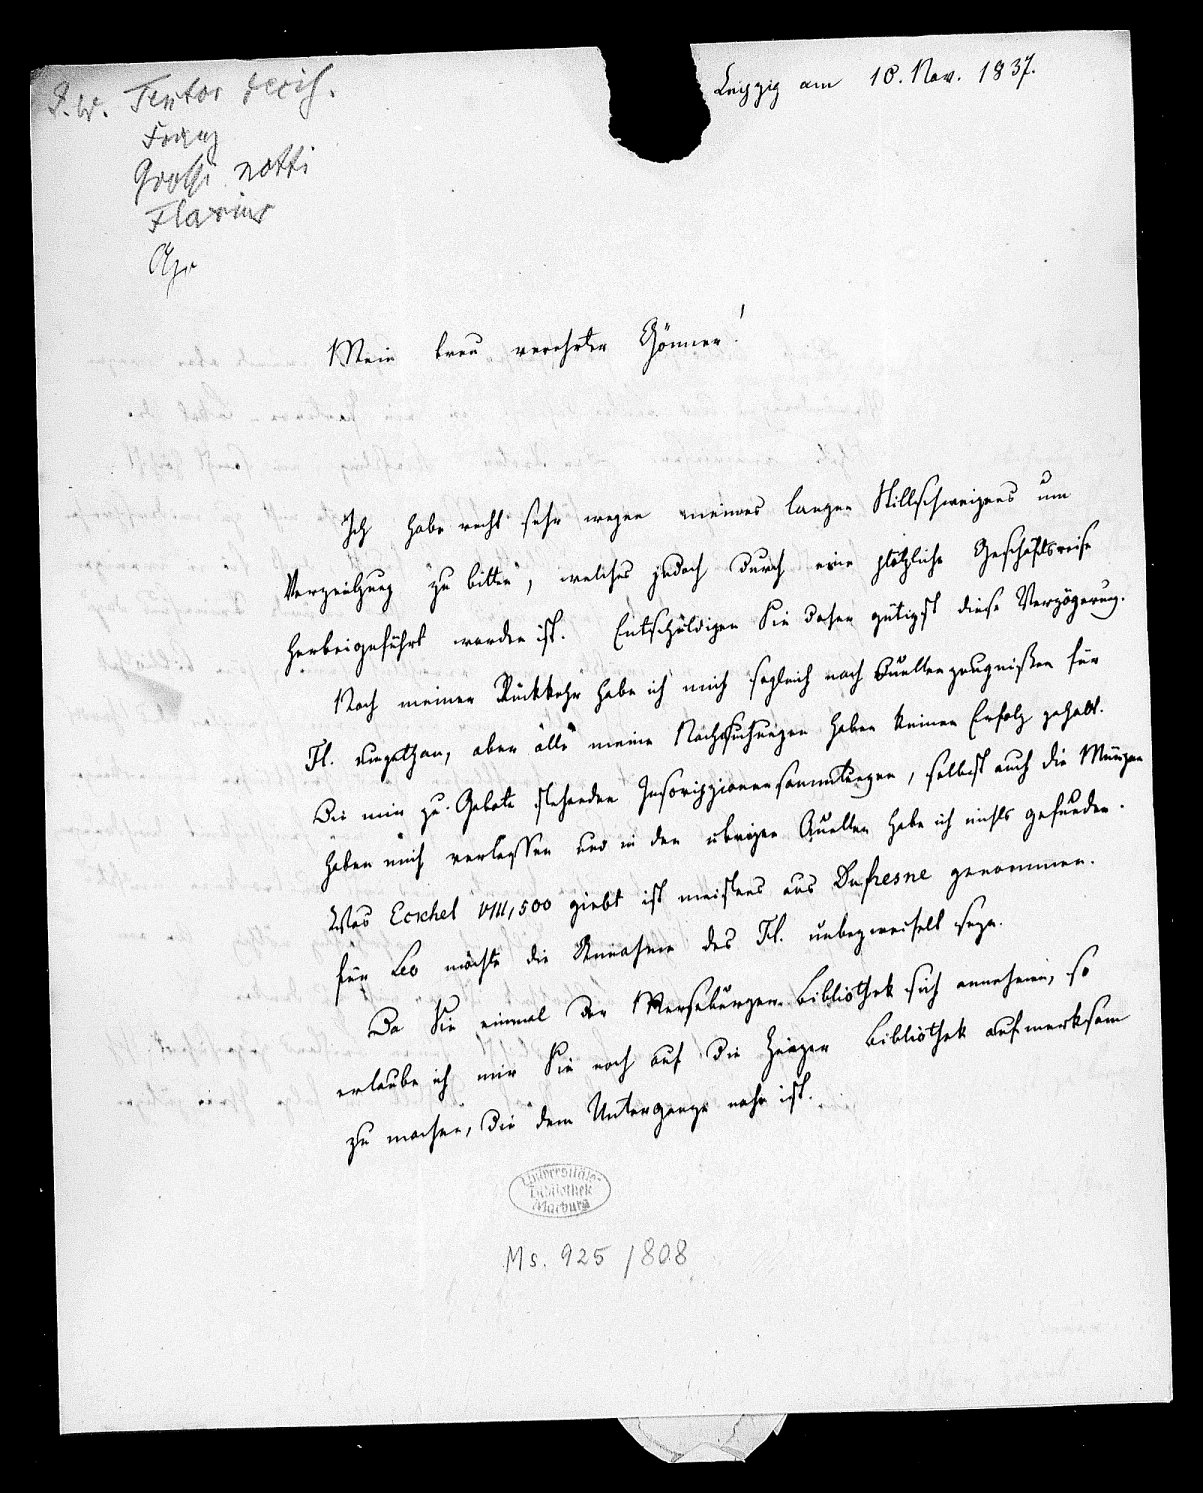 Leipzig am 18. Nov. 1837.
Textor
Franz
Grossi notti
Flavius
Mein treu verehrter Gönner!
Ich habe recht sehr wegen meines langen Stillschweigens um
Verzeihung zu bitten, welches jedoch durch eine plötzliche Geschäftsreise
herbeigeführt worden ist. Entschuldigen Sie daher gütigst diese Verzögerung.
Nach meiner Rückkehr habe ich mich sogleich nach Quellenzeugnißen für
Fl. umgethan, aber alle meine Nachsuchungen haben keinen Erfolg gehabt.
Die mir zu Gebote stehenden Inscripzionensammlungen, selbst auch die Münzen
haben mich verlassen und in den übrigen Quellen habe ich nichts gefunden.
Was Eckhel VIII, 500 giebt ist meistens aus Dufresne genommen.
für Leo möchte die Annahme des Fl. unbezweifelt seyn.
Da Sie einmal der Merseburger Bibliothek sich annehmen, so
erlaube ich mir Sie noch auf die Zeizer Bibliothek aufmerksam
zu machen, die dem Untergange nahe ist.
Universitäts-
Bibliothek
Marburg
Ms. 925/808